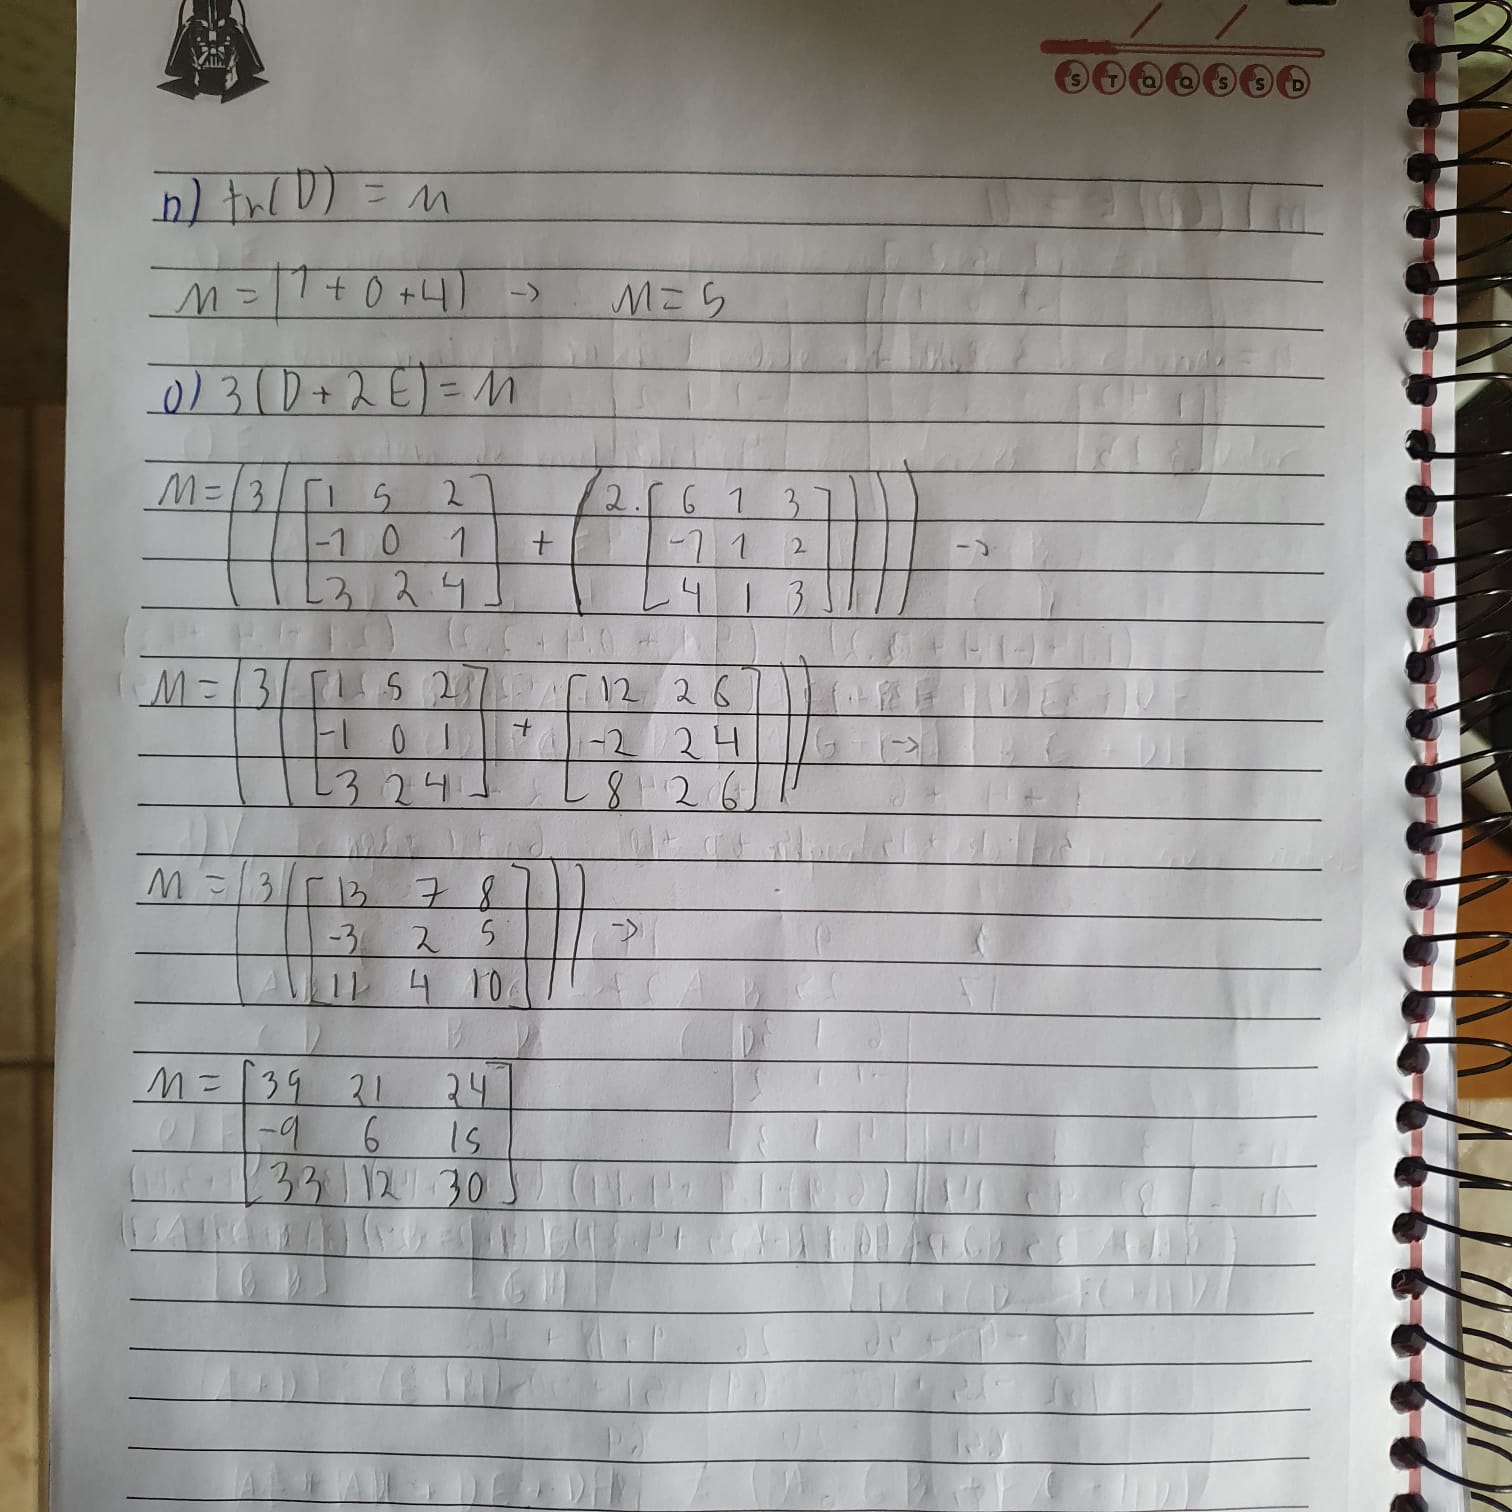 S T Q Q S S D
n) tr(D) = M
M = (1 + 0 + 4) -> M = 5
o) 3(D + 2E) = M
M = (3 ( [ 1 5 2 ] + ( 2 . [ 6 1 3 ] ) ) ) ->
-1 0 1 -1 1 2
3 2 4 4 1 3
M = (3 ( [ 1 5 2 ] + [ 12 2 6 ] ) ) ->
-1 0 1 -2 2 4
3 2 4 8 2 6
M = (3 ( [ 13 7 8 ] ) ) ->
-3 2 5
11 4 10
M = [ 39 21 24 ]
-9 6 15
33 12 30